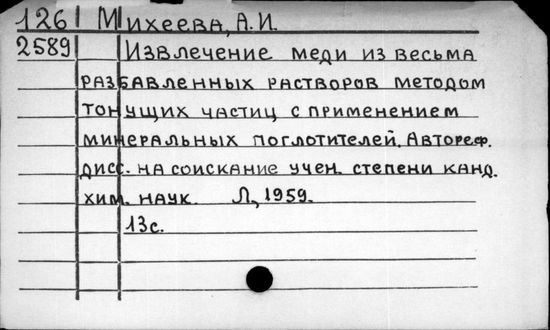 126 Михеева, А.И.
2589 Извлечение меди из весьма
разбавленных растворов методом
тонущих частиц с применением
минеральных поглотителей. Автореф.
дисс. на соискание учен. степени канд.
хим. наук. Л., 1959.
13с.